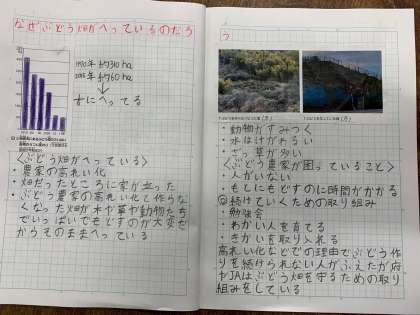 なぜぶどう畑がへっているのだろう
1970年 約310ha
2015年 約60ha
↓
大にへってる
〈ぶどう畑がへっている〉
・農家の高れい化
・畑だったところに家が立った
・ぶどう農家の高れい化で作らなくなった畑が木や草や動物たち
でいっぱいでもどすのが大変だ
からそのままへっている
・動物がすみつく
・水はけがわるい
・ざっ草が多い
〈ぶどう農家が困っていること〉
・人がいない
・もとにもどすのに時間がかかる
続けていくための取り組み
・勉強会
・わかい人を育てる
・きかいを取り入れる
高れい化などでの理由でぶどう作
りを続けられない人がふえたが府
やJAはぶどう畑を守るための取り
組みをしている